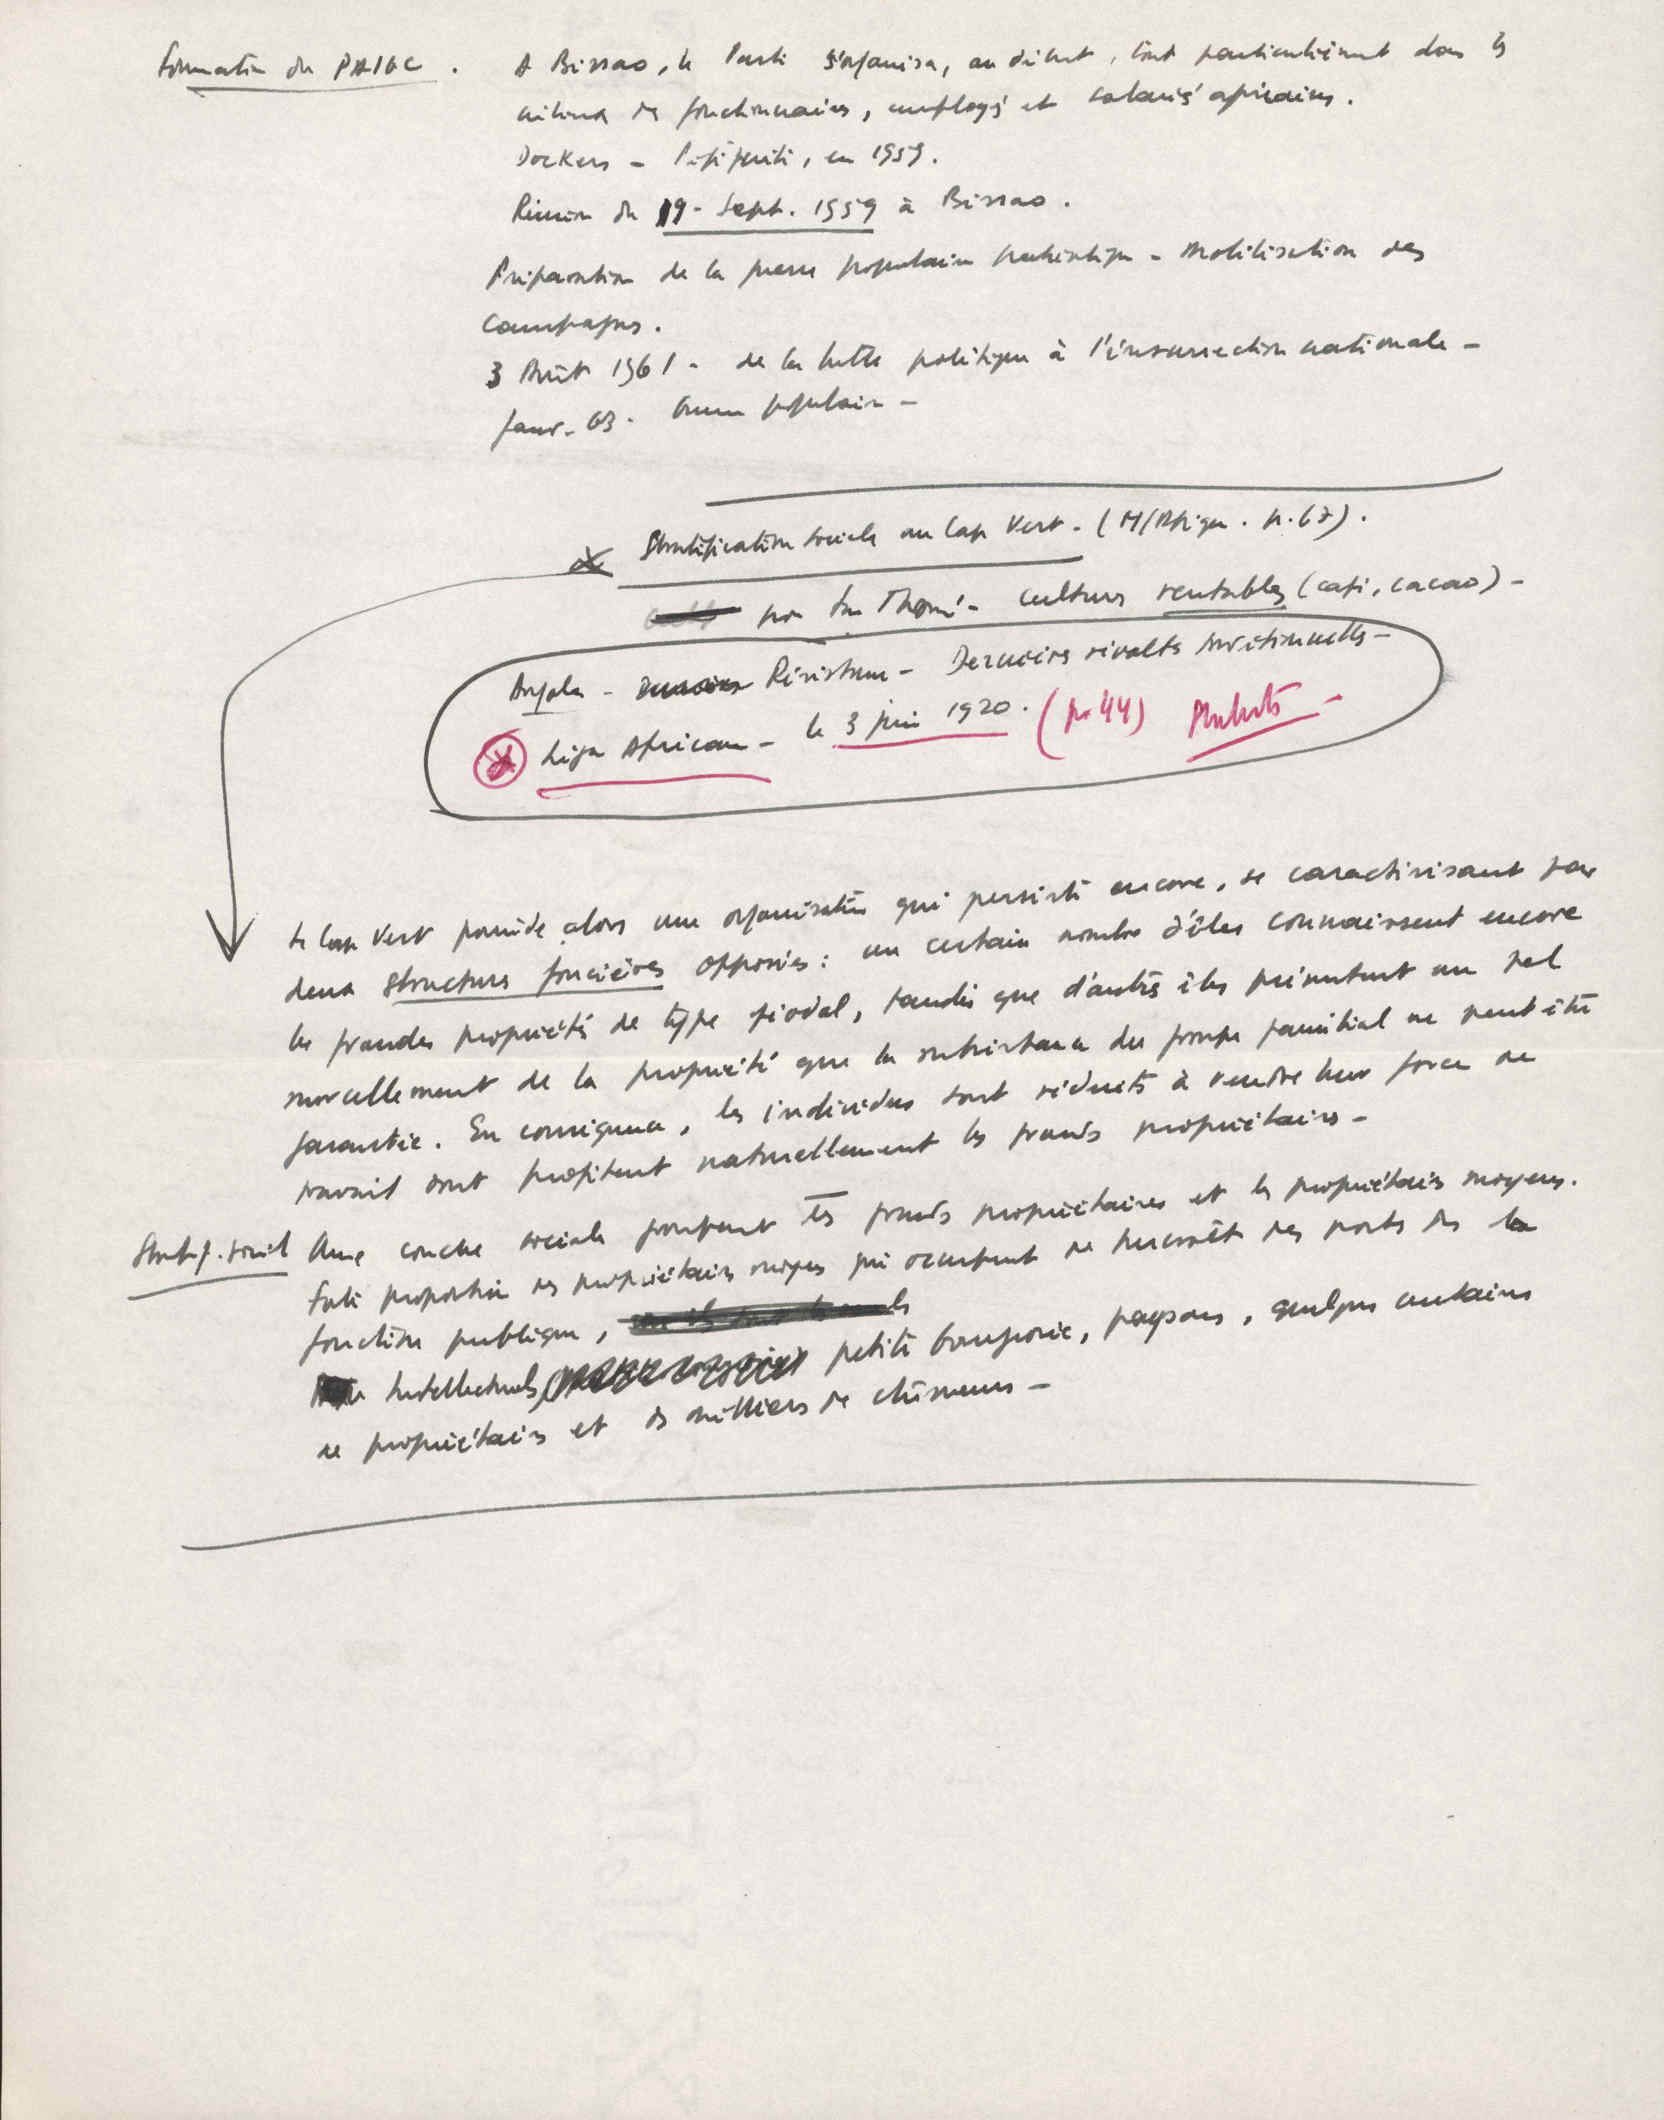 Formation du PAIGC. A Bissao, le Parti s'organisa, au début, tout particulièrement dans les
milieux des fonctionnaires, employés et salariés africains.
Dockers - Pigiguiti, en 1959.
Réunion du 19 - Sept. 1959 à Bissao.
Préparation de la guerre populaire authentique - Mobilisation des
Campagnes.
3 Août 1961 - de la lutte politique à l'insurrection nationale -
Janv. 63. Guerre populaire -
Stratification sociale au Cap Vert - (M/Afrique. p. 67).
São Thomé - cultures rentables (café, cacao) -
Angola - Résistance - Dernières révoltes traditionnelles -
Liga Africana - le 3 juin 1920. (p. 44)
le Cap Vert possède alors une organisation qui persiste encore, se caractérisant par
deux structures foncières opposées : un certain nombre d'îles connaissent encore
les grandes propriétés de type féodal, tandis que d'autres îles présentent un tel
morcellement de la propriété que la subsistance du groupe familial ne peut être
garantie. En conséquence, les individus sont réduits à vendre leur force de
travail dont profitent naturellement les grands propriétaires -
Stratif. social Une couche sociale groupant les grands propriétaires et les propriétaires moyens.
Forte proportion des propriétaires moyens qui occupent de surcroît des postes de la
fonction publique,
Intellectuels petite bourgeoisie, paysans, quelques centaines
de propriétaires et des milliers de chômeurs -